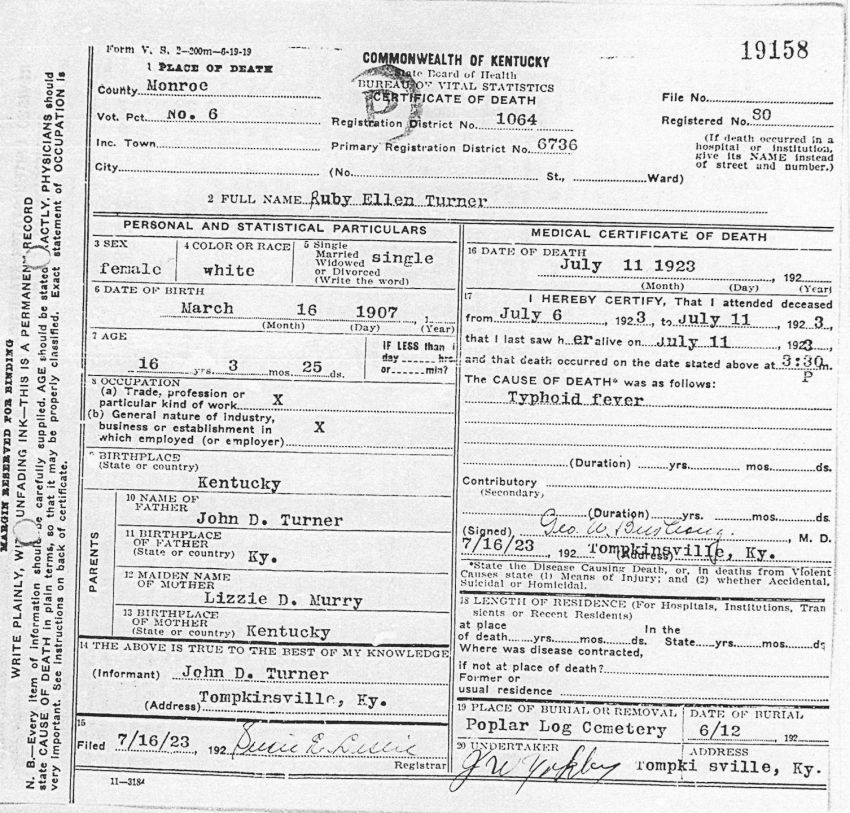 Form V. S. 2—200m—6-19-19
COMMONWEALTH OF KENTUCKY
19158
1 PLACE OF DEATH
State Board of Health
BUREAU OF VITAL STATISTICS
CERTIFICATE OF DEATH
County Monroe
File No.
Vot. Pct. No. 6
Registration District No. 1064
Registered No. 80
(If death occurred in a
hospital or institution,
give its NAME instead
of street and number.)
Inc. Town
Primary Registration District No. 6736
City (No. St., Ward)
2 FULL NAME Ruby Ellen Turner
PERSONAL AND STATISTICAL PARTICULARS
3 SEX
female
4 COLOR OR RACE
white
5 Single
Married
Widowed
or Divorced
(Write the word)
single
6 DATE OF BIRTH
March 16 1907
(Month) (Day) (Year)
7 AGE
16 yrs. 3 mos. 25 ds.
IF LESS than 1
day hrs
or min?
8 OCCUPATION
(a) Trade, profession or
particular kind of work X
(b) General nature of industry,
business or establishment in X
which employed (or employer)
9 BIRTHPLACE
(State or country)
Kentucky
PARENTS
10 NAME OF
FATHER
John D. Turner
11 BIRTHPLACE
OF FATHER
(State or country) Ky.
12 MAIDEN NAME
OF MOTHER
Lizzie D. Murry
13 BIRTHPLACE
OF MOTHER
(State or country) Kentucky
14 THE ABOVE IS TRUE TO THE BEST OF MY KNOWLEDGE
(Informant) John D. Turner
(Address) Tompkinsville, Ky.
15
Filed 7/16/23, 192
Registrar
11—3184
MEDICAL CERTIFICATE OF DEATH
16 DATE OF DEATH
July 11 1923, 192
(Month) (Day) (Year)
17 I HEREBY CERTIFY, That I attended deceased
from July 6, 1923, to July 11, 1923,
that I last saw her alive on July 11, 1923,
and that death occurred on the date stated above at 3:30 m.
P
The CAUSE OF DEATH* was as follows:
Typhoid fever
(Duration) yrs. mos. ds.
Contributory
(Secondary)
(Duration) yrs. mos. ds.
(Signed) Geo. W. Bushong, M. D.
7/16/23, 192 (Address) Tompkinsville, Ky.
*State the Disease Causing Death, or, in deaths from Violent
Causes state (1) Means of Injury; and (2) whether Accidental,
Suicidal or Homicidal.
18 LENGTH OF RESIDENCE (For Hospitals, Institutions, Tran
sients or Recent Residents)
at place In the
of death yrs. mos. ds. State yrs. mos. ds
Where was disease contracted,
if not at place of death?
Former or
usual residence
19 PLACE OF BURIAL OR REMOVAL
Poplar Log Cemetery
DATE OF BURIAL
6/12, 192
20 UNDERTAKER
ADDRESS
Tompki sville, Ky.
MARGIN RESERVED FOR BINDING
WRITE PLAINLY, WI UNFADING INK—THIS IS A PERMANENT RECORD
N. B.—Every item of information should be carefully supplied. AGE should be stated EXACTLY. PHYSICIANS should
state CAUSE OF DEATH in plain terms, so that it may be properly classified. Exact statement of OCCUPATION is
very important. See instructions on back of certificate.